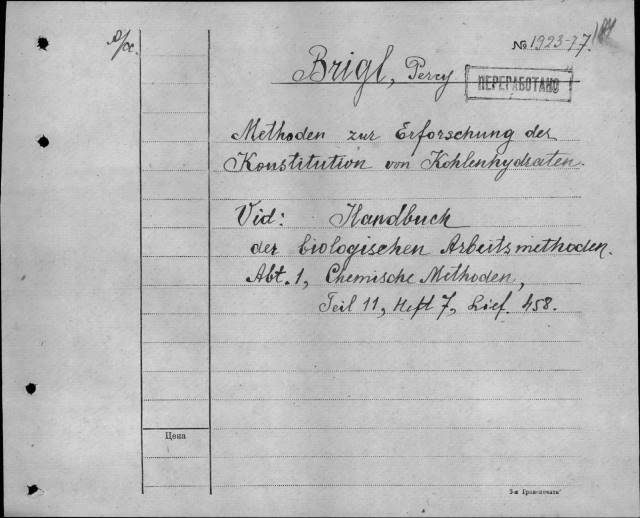 № 1923-77.
Brigl, Percy
ПЕРЕРАБОТАНО
Methoden zur Erforschung der
Konstitution von Kohlenhydraten.
Vid: Handbuch
der biologischen Arbeitsmethoden.
Abt. 1, Chemische Methoden,
Teil 11, Heft 7, Lief. 458.
Цена